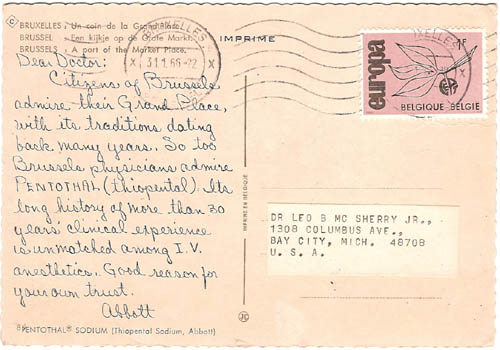 C
BRUXELLES : Un coin de la Grand'Place.
BRUSSEL : Een kijkje op de Grote Markt.
BRUSSELS : A part of the Market Place.
IMPRIMÉ
BRUXELLES
X 31 1 66-22 X
BRUXELLES
europa
1F
BELGIQUE-BELGIË
Dear Doctor:
Citizens of Brussels
admire their Grand Place,
with its traditions dating
back many years. So too
Brussels physicians admire
PENTOTHAL (thiopental). Its
long history of more than 30
years clinical experience
is unmatched among I.V.
anesthetics. Good reason for
your own trust.
Abbott
PENTOTHAL® SODIUM (Thiopental Sodium, Abbott)
IMPRIMÉ EN BELGIQUE
DR LEO B MC SHERRY JR.,
1308 COLUMBUS AVE.,
BAY CITY, MICH. 48708
U. S. A.